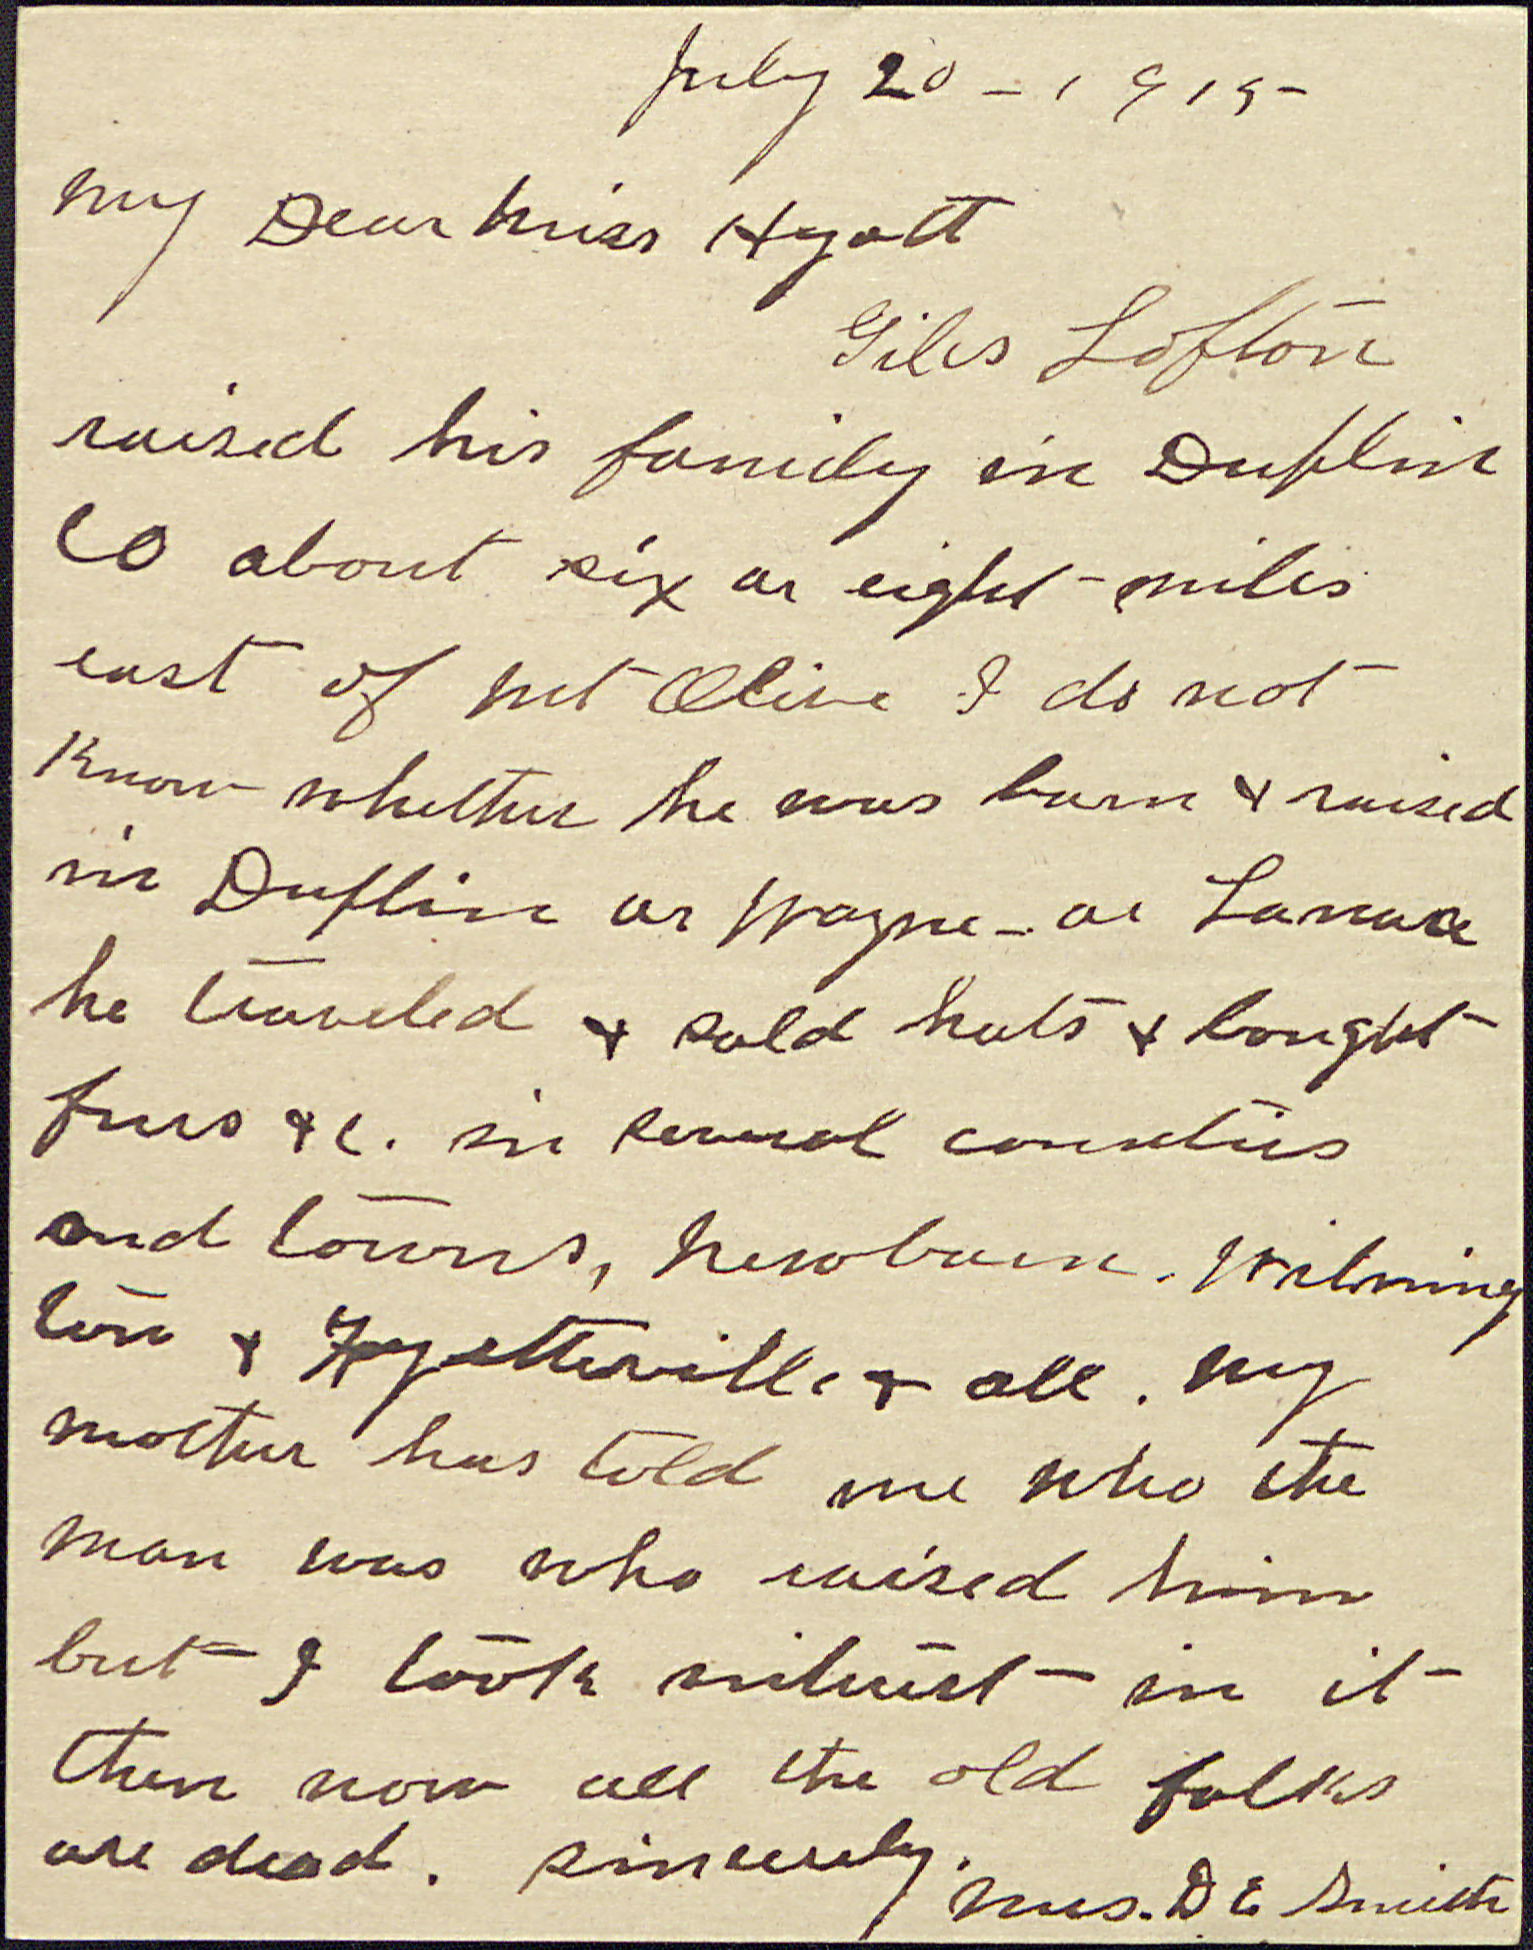 July 20 - 1915-
My Dear Miss Hyatt
Giles Lofton
raised his family in Duplin
CO about six or eight miles
east of Mt Olive I do not
know whether he was born & raised
in Duplin or Wayne - or
he traveled & sold hats & bought
furs &c. in several counties
and towns, Newbern. Wilming
ton & Fayetteville & all. My
mother has told me who the
man was who raised him
but I took interest in it
then now all the old folks
are dead. Sincerely,
Mrs. D E Smith